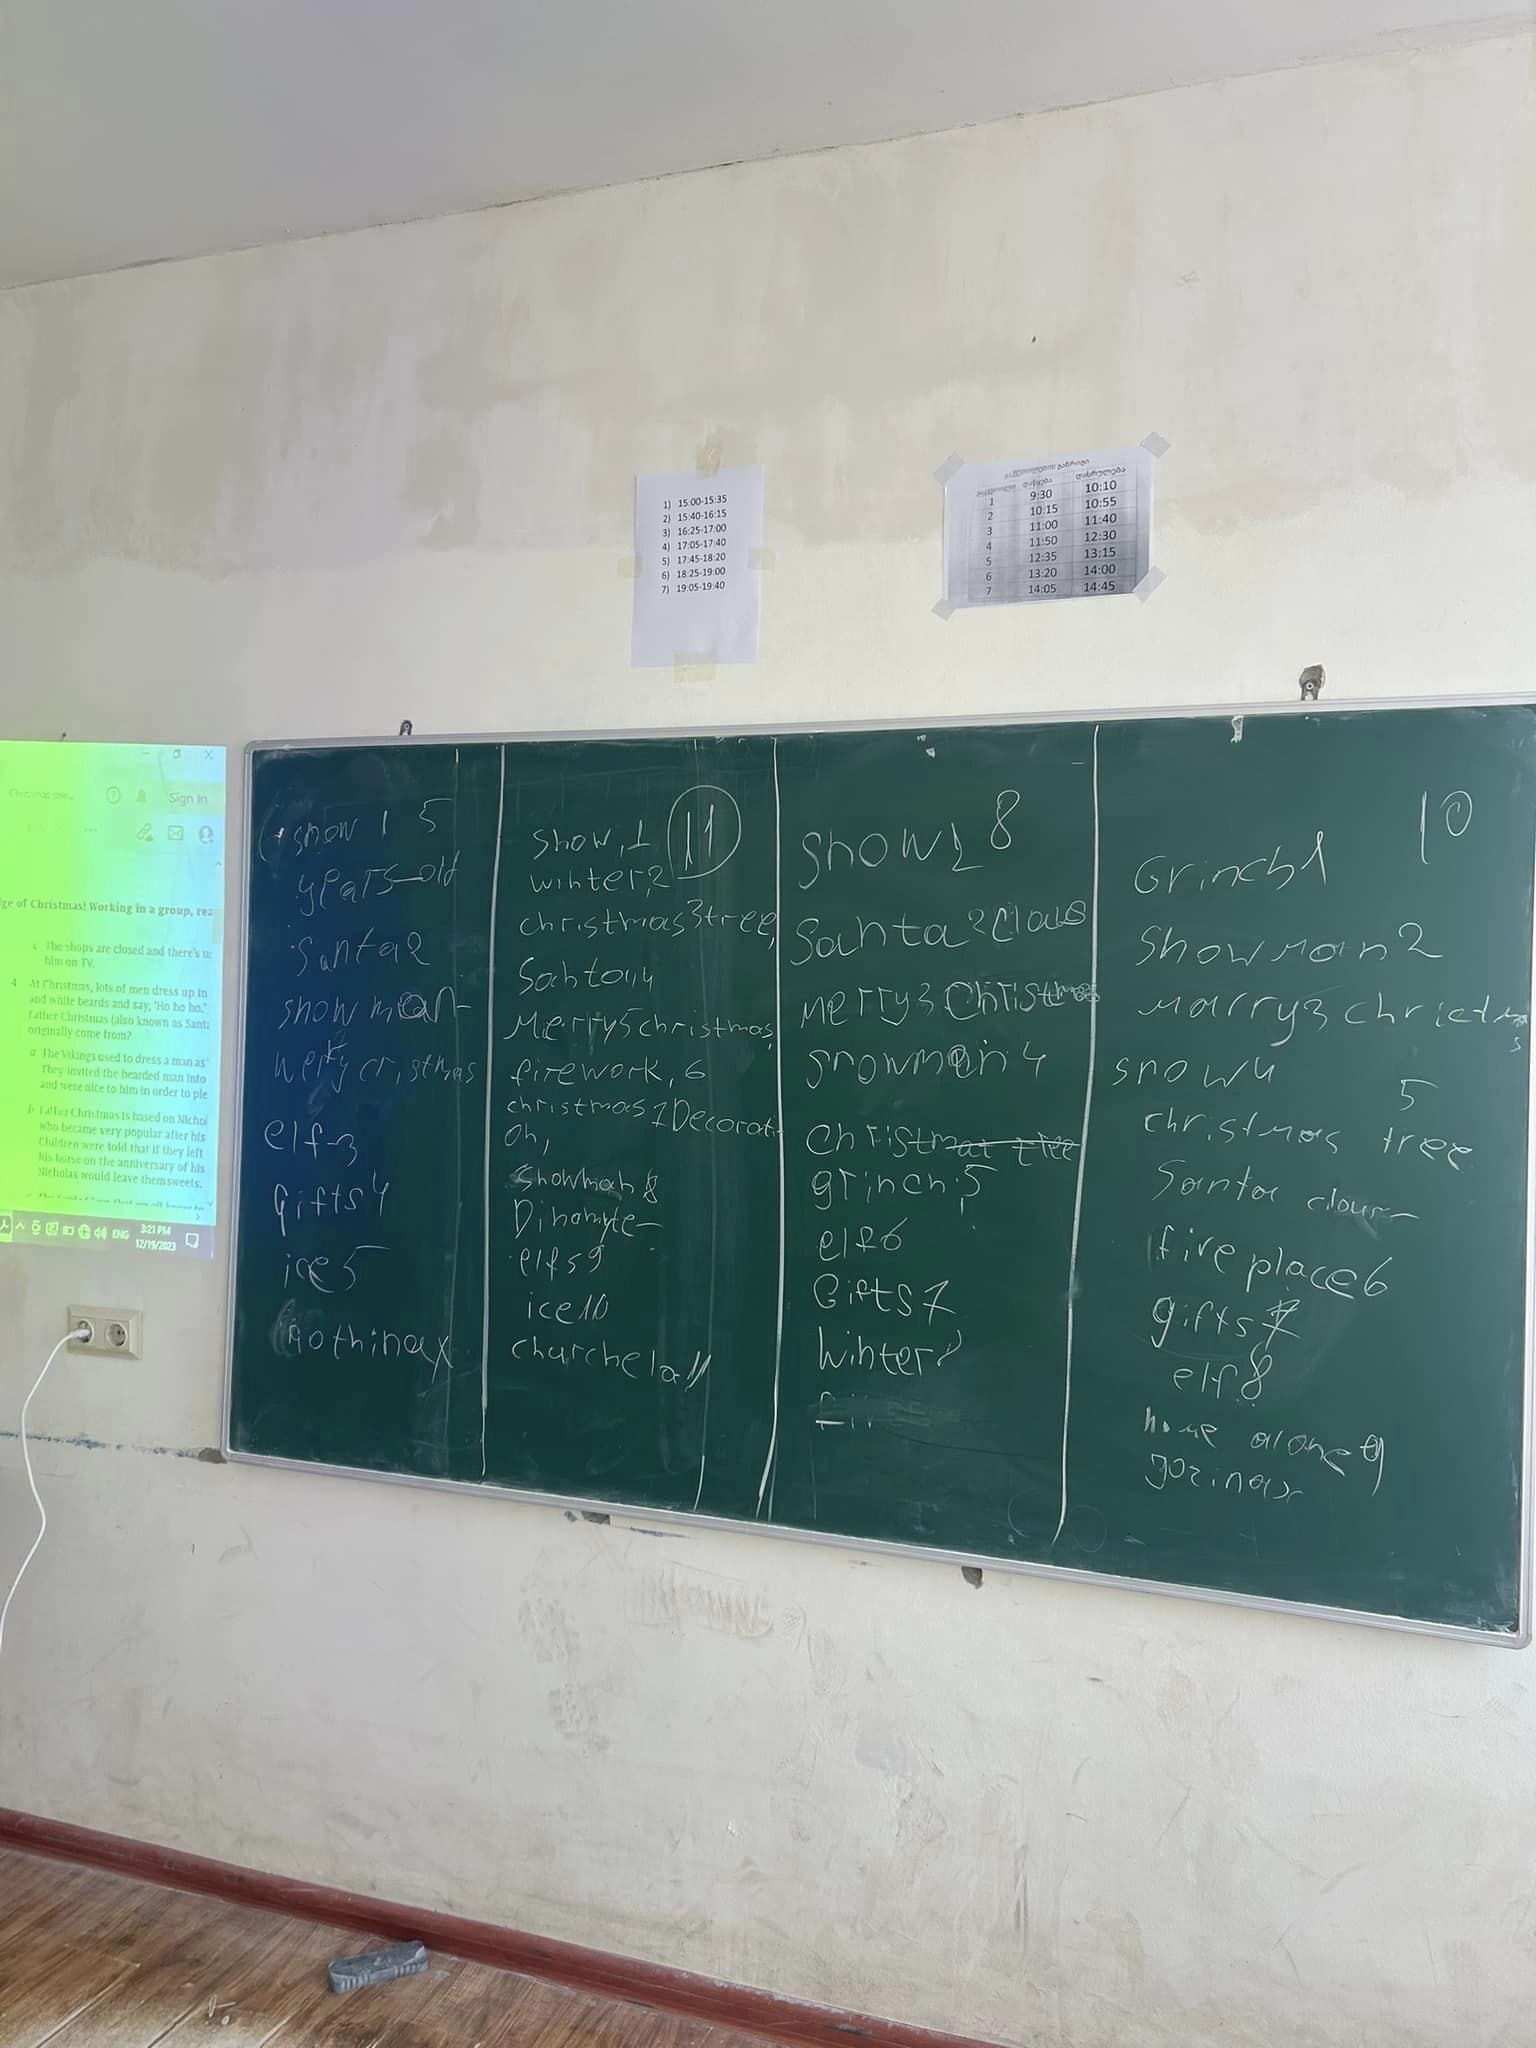 1) 15:00-15:35
2) 15:40-16:15
3) 16:25-17:00
4) 17:05-17:40
5) 17:45-18:20
6) 18:25-19:00
7) 19:05-19:40
გაკვეთილების განრიგი
გაკვეთილი დაწყება დასრულება
1 9:30 10:10
2 10:15 10:55
3 11:00 11:40
4 11:50 12:30
5 12:35 13:15
6 13:20 14:00
7 14:05 14:45
Sign In
ge of Christmas! Working in a group, rea
c The shops are closed and there's
him on TV.
4 At Christmas, lots of men dress up in
and white beards and say, "Ho ho ho."
Father Christmas (also known as Santa
originally come from?
a The Vikings used to dress a man as
They invited the bearded man into
and were nice to him in order to ple
b Father Christmas is based on Nichol
who became very popular after his
Children were told that if they left
his horse on the anniversary of his
Nicholas would leave them sweets.
ENG 3:21 PM
12/19/2023
snow 1 5
years-old
Santa2
snow mean-
cristmas
elf-3
Gifts4
ice5
11
snow, 1
winter,2
christmas3tree,
Santa,4
Merry5christmas,
firework, 6
christmas 7Decorati
Oh,
snowman8
Dinamyte-
elfs9
ice10
churchela11
snow1 8
Santa 2Claus
merry3 Christmas
snowman 4
Christmas tree
grinch5
elf6
Gifts7
winter8
10
Grinch1
Snowman2
marry3 christmas
snow4
5
christmas tree
Santa claus-
fireplace6
gifts7
elf8
home alone9
gozinax